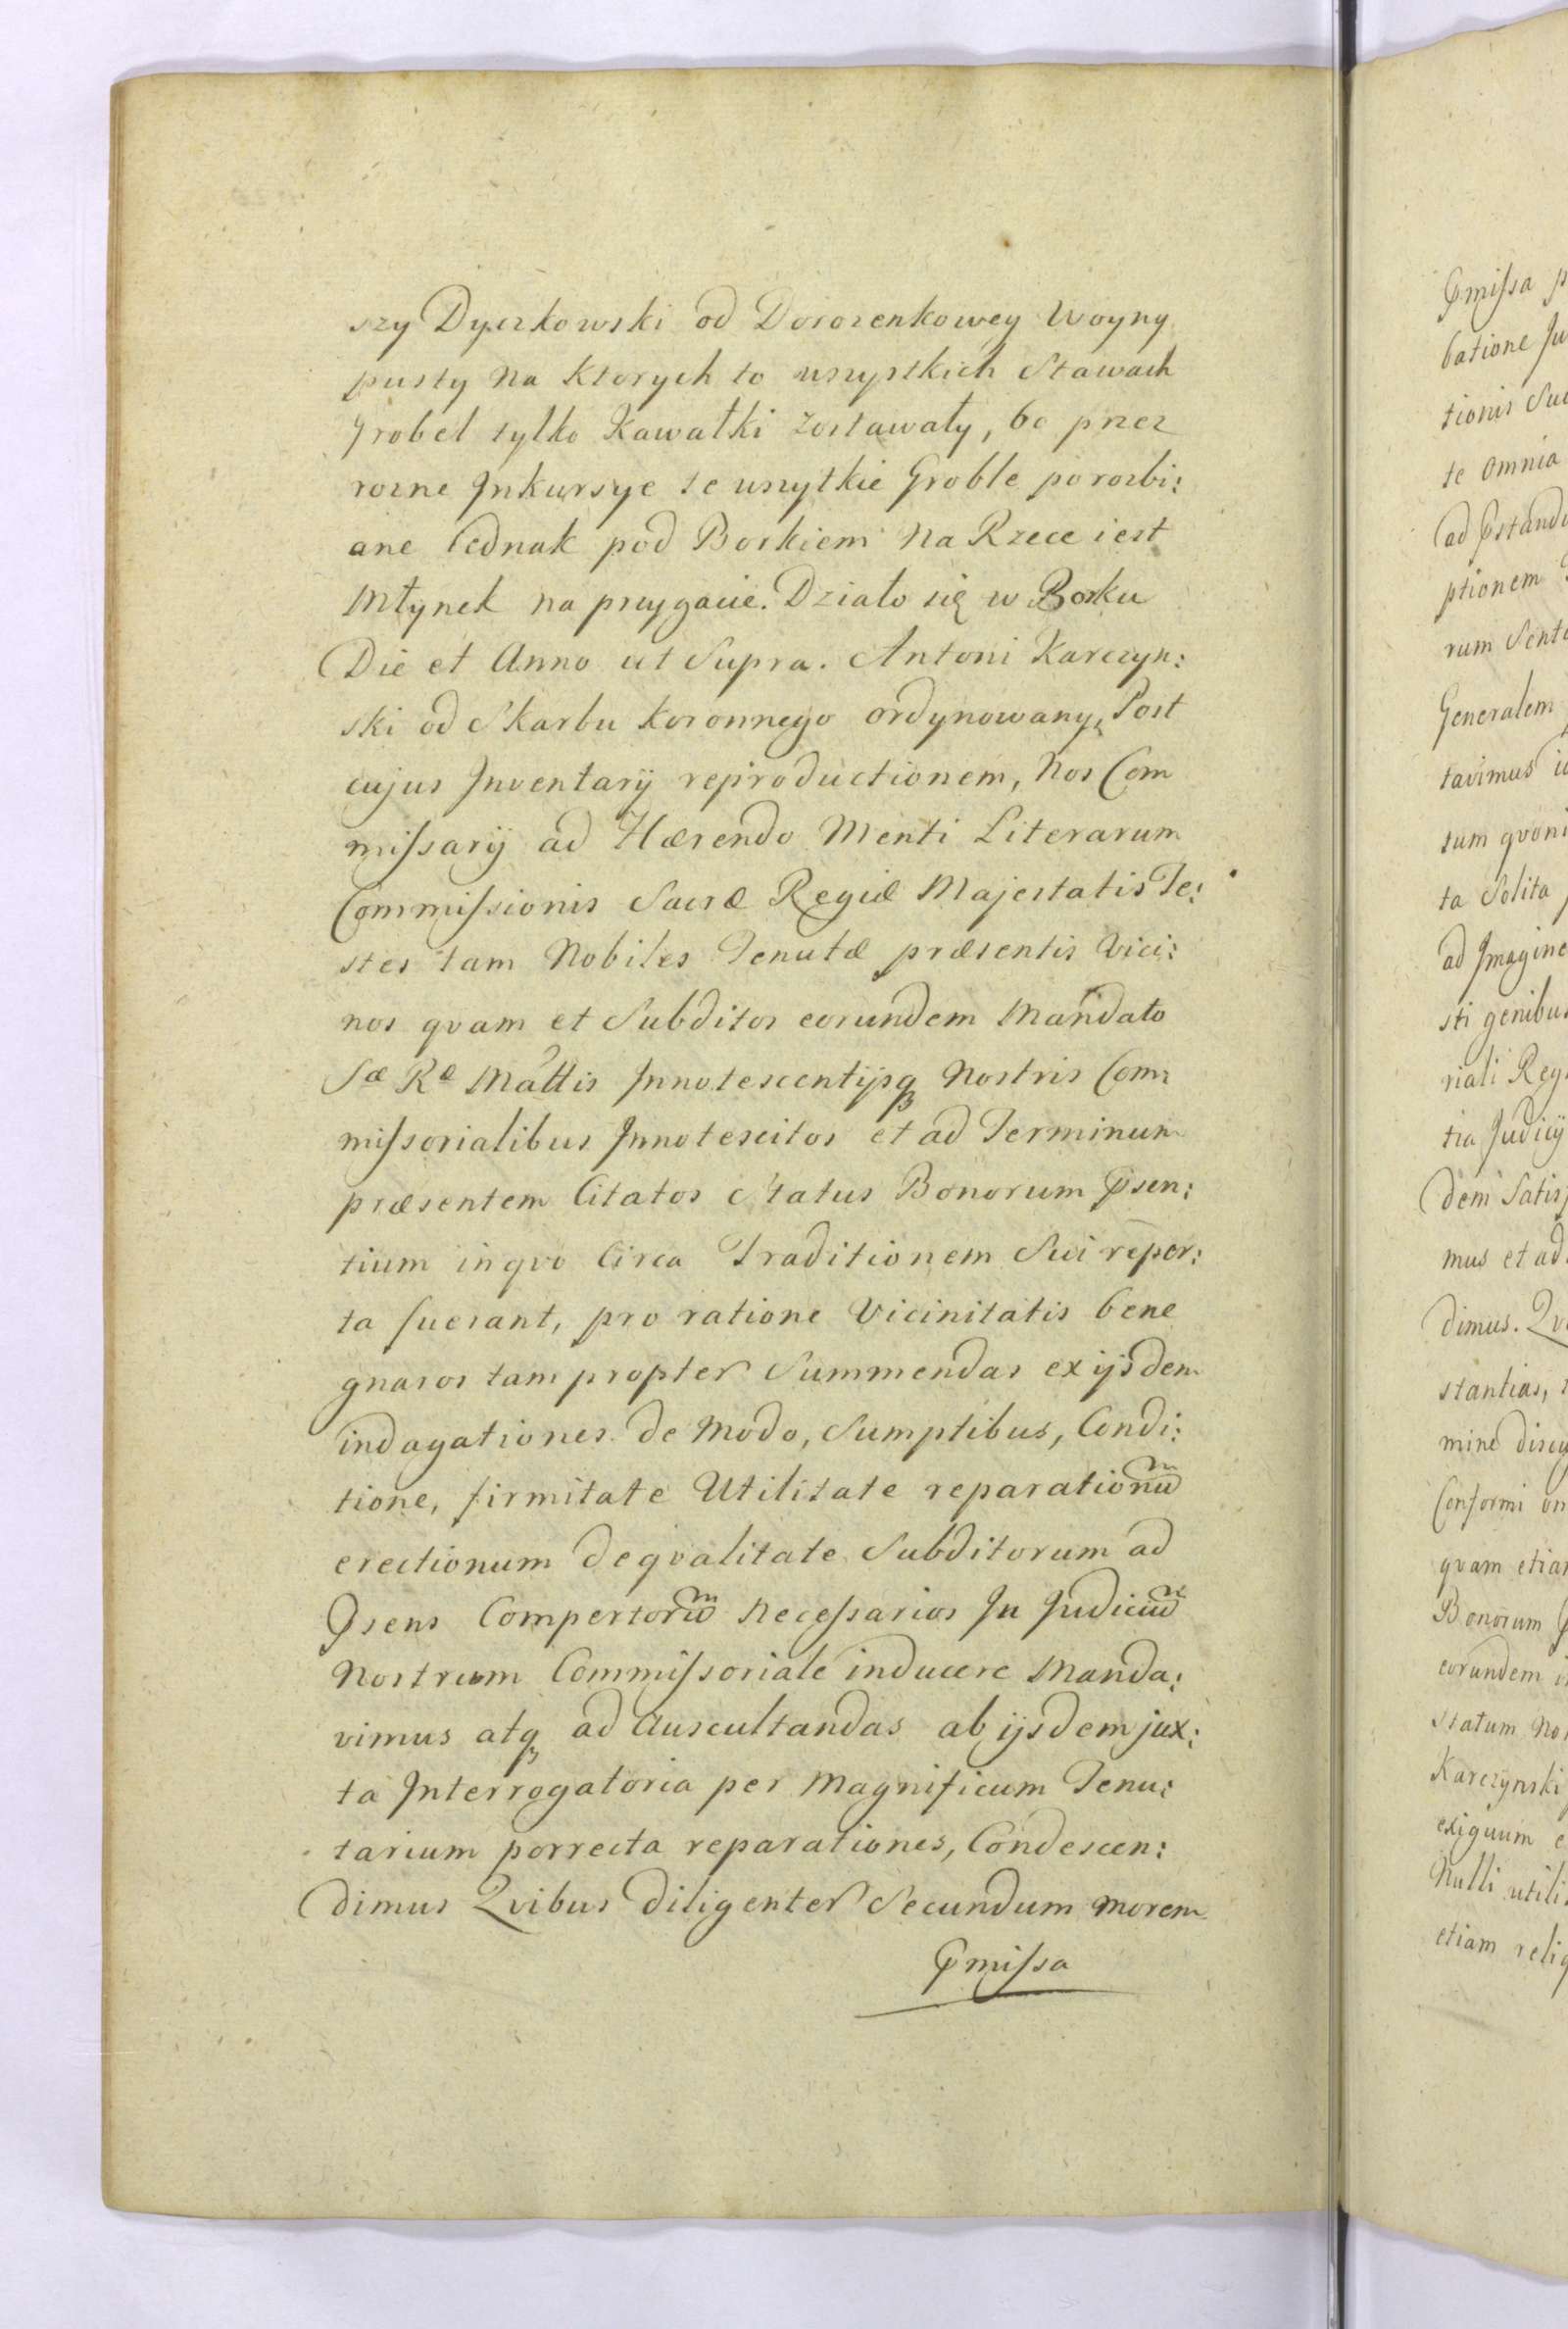 szy Dyczkowski od Dorozenkowey Woyny
pusty na ktorych to wszystkich Stawach
Grobel tylko Kawałki zostawały, bo przez
rozne Inkursye te wszytkie Groble porozbi:
ane Jednak pod Borkiem na Rzece iest
Młynek na przygacie. Działo się w Borku
Die et Anno ut Supra. Antoni Karczyn:
ski od Skarbu koronnego ordynowany, Post
cujus Inventarij reproductionem, Nos Com
missarij ad Hærendo Menti Literarum
Commissionis Sacræ Regiæ Majestatis Te:
stes tam Nobiles Tenutæ præsentis Vici:
nos qvam et Subditos eorundem Mandato
Sæ Ræ Mattis Innotescentijsq Nostris Com:
missorialibus Innotescitos et ad Terminum
præsentem Citatos Status Bonorum Psen:
tium inqvo Circa Traditionem Sui reper:
ta fuerant, pro ratione Vicinitatis bene
gnaros tam propter Summendas ex ijsdem
indagationes de Modo, Sumptibus, Condi:
tione, firmitate Utilitate reparationum
erectionum deqvalitate Subditorum ad
Psens Compertorium Necessarios In Judicium
Nostrum Commissoriale inducere Manda:
vimus atq ad Auscultandas ab ijsdem jux:
ta Interrogatoria per Magnificum Tenu:
tarium porrecta reparationes, Condescen:
dimus Qvibus diligenter Secundum morem
Pmissa
Pmissa
batione
tionis
te omnia
ad
ptionem
rum
Generalem
tavimus
tum
ta Solita
ad
sti genibus
riali
tia Judicij
dem
mus et ad
dimus.
stantias,
mine
Conformi
qvam
Bonorum
eorundem
statum
Karczynski
exiguum
Nulli
etiam